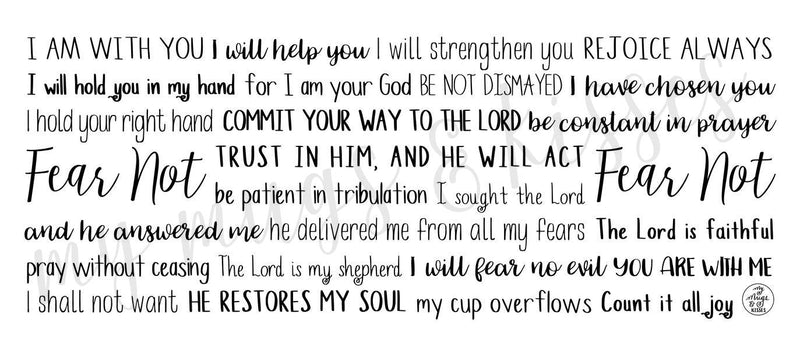 I AM WITH YOU I will help you I will strengthen you REJOICE ALWAYS
I will hold you in my hand for I am your God BE NOT DISMAYED I have chosen you
I hold your right hand COMMIT YOUR WAY TO THE LORD be constant in prayer
Fear Not TRUST IN HIM, AND HE WILL ACT Fear Not
be patient in tribulation I sought the Lord
and he answered me he delivered me from all my fears The Lord is faithful
pray without ceasing The Lord is my shepherd I will fear no evil YOU ARE WITH ME
I shall not want HE RESTORES MY SOUL my cup overflows Count it all joy
my mugs & kisses
MY MUGS & KISSES